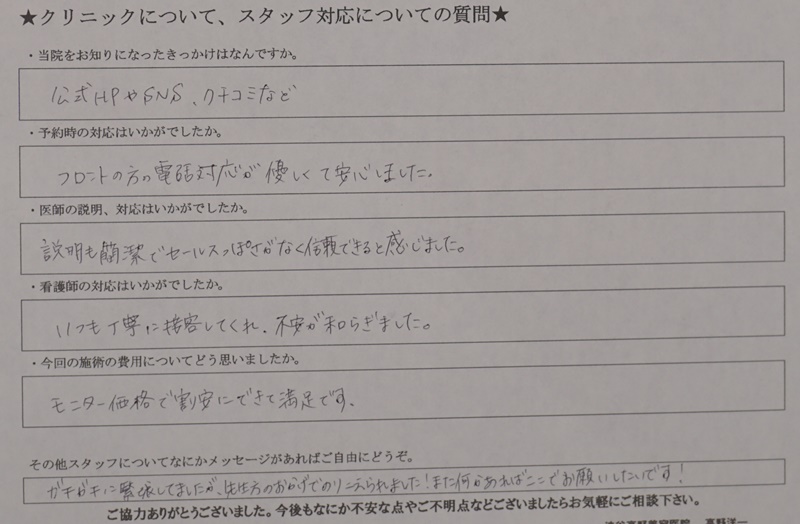 ★クリニックについて、スタッフ対応についての質問★
・当院をお知りになったきっかけはなんですか。
公式HPやSNS、クチコミなど
・予約時の対応はいかがでしたか。
フロントの方の電話対応が優しくて安心しました。
・医師の説明、対応はいかがでしたか。
説明も簡潔でセールスっぽさがなく信頼できると感じました。
・看護師の対応はいかがでしたか。
いつも丁寧に接客してくれ、不安が和らぎました。
・今回の施術の費用についてどう思いましたか。
モニター価格で割安にできて満足です。
その他スタッフについてなにかメッセージがあればご自由にどうぞ。
ガチガチに緊張してましたが、先生方のおかげでのりこえられました!また何かあればここでお願いしたいです!
ご協力ありがとうございました。今後もなにか不安な点やご不明点などございましたらお気軽にご相談下さい。